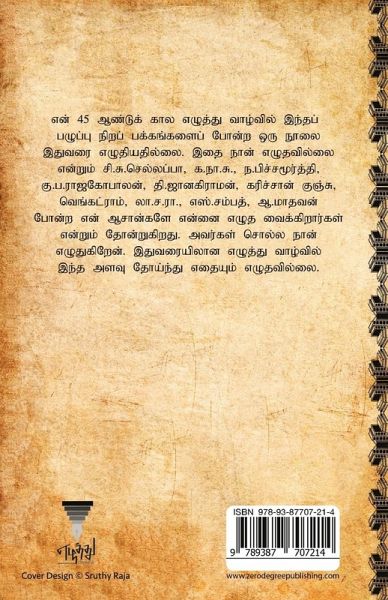 என் 45 ஆண்டுக் கால எழுத்து வாழ்வில் இந்தப்
பழுப்பு நிறப் பக்கங்களைப் போன்ற ஒரு நூலை
இதுவரை எழுதியதில்லை. இதை நான் எழுதவில்லை
என்றும் சி.சு.செல்லப்பா, க.நா.சு., ந.பிச்சமூர்த்தி,
கு.ப.ராஜகோபாலன், தி.ஜானகிராமன், கரிச்சான் குஞ்சு,
வெங்கட்ராம், லா.ச.ரா., எஸ்.சம்பத், ஆ.மாதவன்
போன்ற என் ஆசான்களே என்னை எழுத வைக்கிறார்கள்
என்றும் தோன்றுகிறது. அவர்கள் சொல்ல நான்
எழுதுகிறேன். இதுவரையிலான எழுத்து வாழ்வில்
இந்த அளவு தோய்ந்து எதையும் எழுதவில்லை.
எழுத்து
Cover Design © Sruthy Raja
ISBN 978-93-87707-21-4
9 789387 707214
www.zerodegreepublishing.com